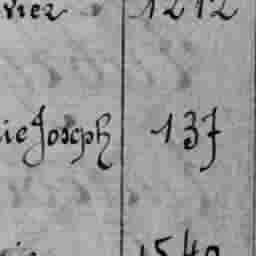 vrier 1212
ie Joseph 137
1540